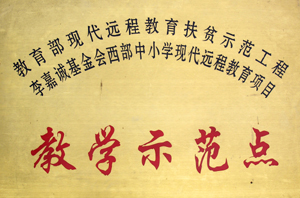 教育部现代远程教育扶贫示范工程
李嘉诚基金会西部中小学现代远程教育项目
教学示范点